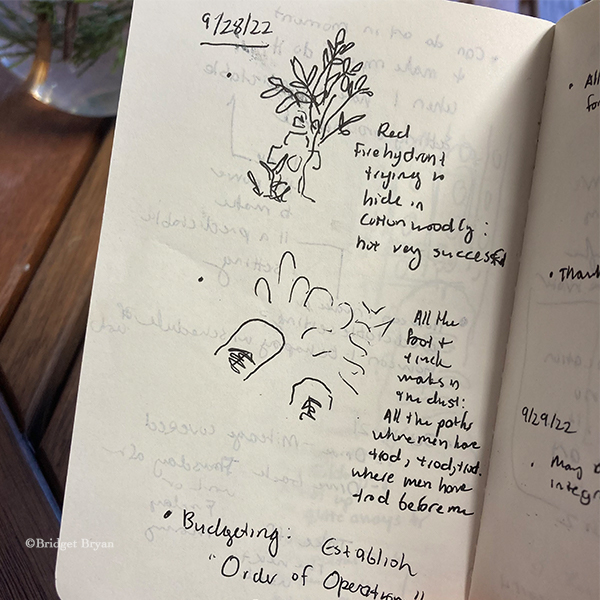 9/28/22
Red
Firehydrant
trying to
hide in
Cottonwoodly:
not very successful
All the
foot &
truck
marks in
the dust:
All the paths
where men have
trod, trod, trod.
where men have
trod before me
• Budgeting: Establish
"Order of Operation"
• All
for
• Thank
9/29/22
• May
integr
©Bridget Bryan